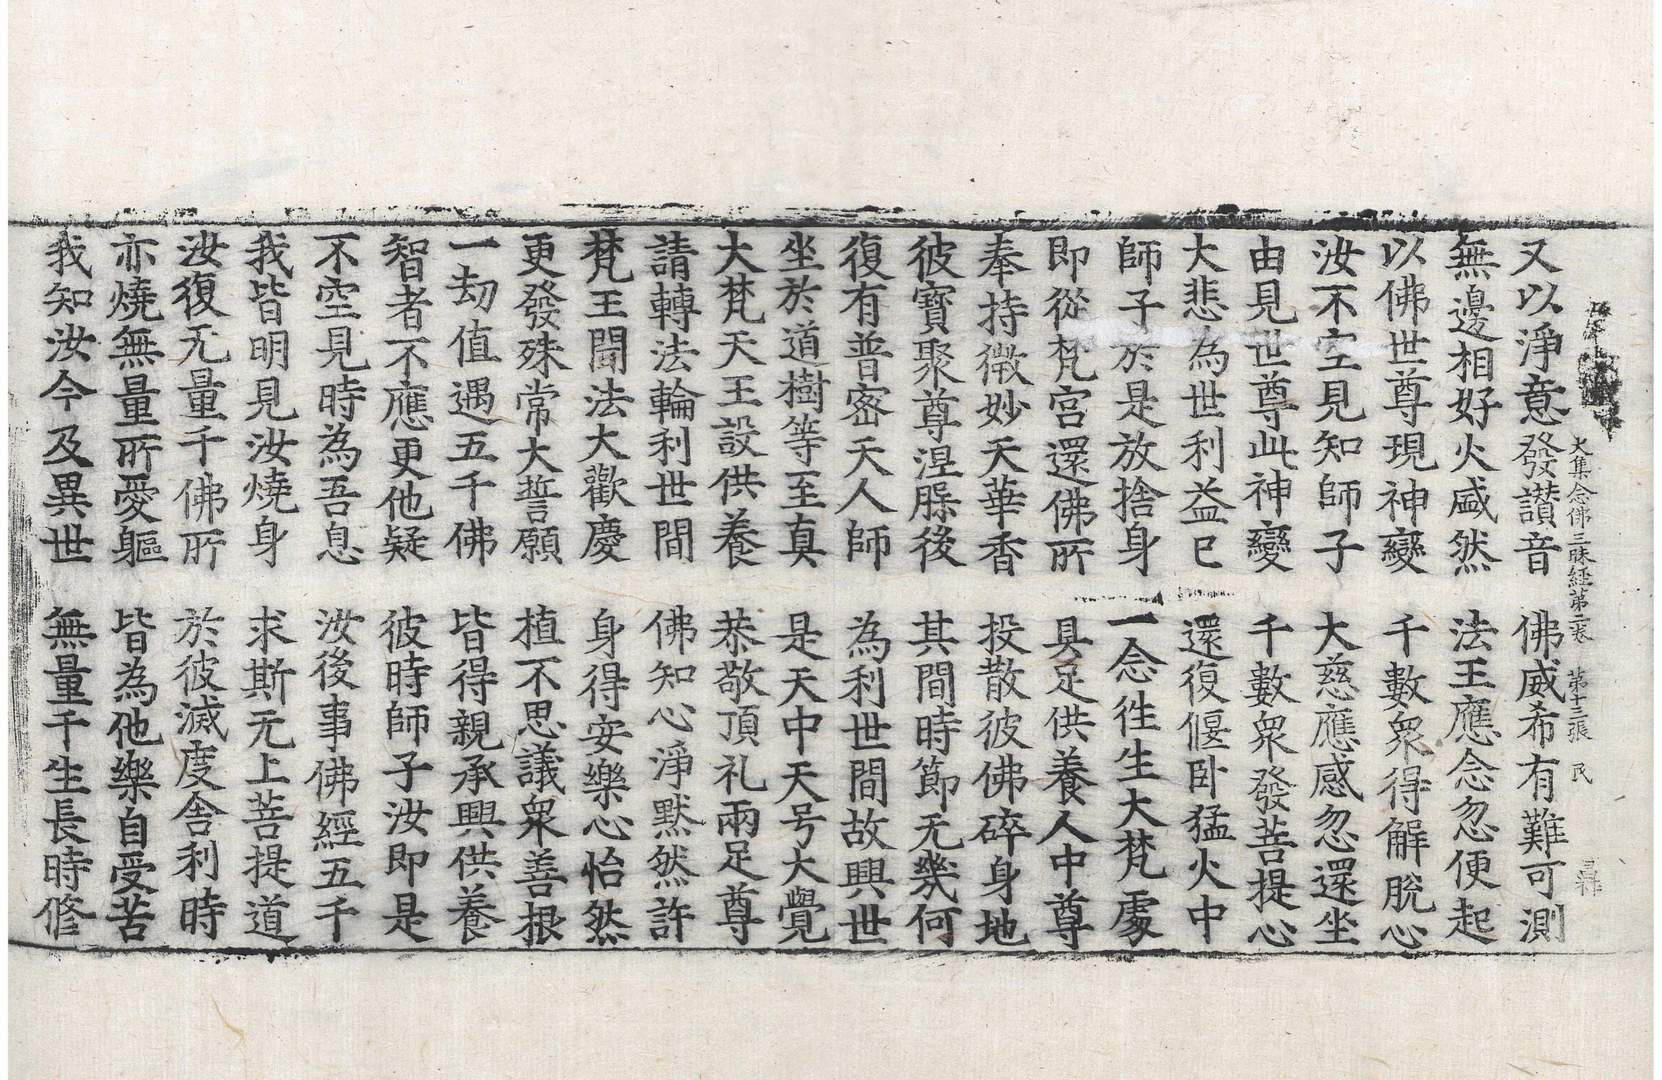 大集念佛三昧經第二卷　第十三張　民
又以淨意發讃音　佛威希有難可測
無邊相好火盛然　法王應念忽便起
以佛世尊現神變　千數衆得解脫心
汝不空見知師子　大慈應感忽還坐
由見世尊此神變　千數衆發菩提心
大悲為世利益已　還復偃卧猛火中
師子於是放捨身　一念徃生大梵處
即從梵宮還佛所　具足供養人中尊
奉持微妙天華香　投散彼佛碎身地
彼寶聚尊涅槃後　其間時節无幾何
復有普密天人師　為利世間故興世
坐於道樹等至真　是天中天号大覺
大梵天王設供養　恭敬頂礼兩足尊
請轉法輪利世間　佛知心淨默然許
梵王聞法大歡慶　身得安樂心怡然
更發殊常大誓願　植不思議衆善根
一劫值遇五千佛　皆得親承興供養
智者不應更他疑　彼時師子汝即是
不空見時為吾息　汝後事佛經五千
我皆明見汝燒身　求斯无上菩提道
汝復无量千佛所　於彼滅度舍利時
亦燒無量所愛軀　皆為他樂自受苦
我知汝今及異世　無量千生長時修